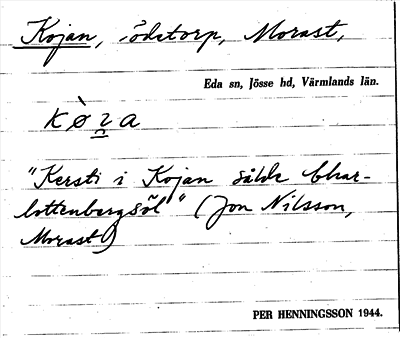 Kojan, ödetorp, Morast,
Eda sn, Jösse hd, Värmlands län.
"Kersti i Kojan sålde Char-
lottenbergsöl" (Jon Nilsson,
Morast)
PER HENNINGSSON 1944.